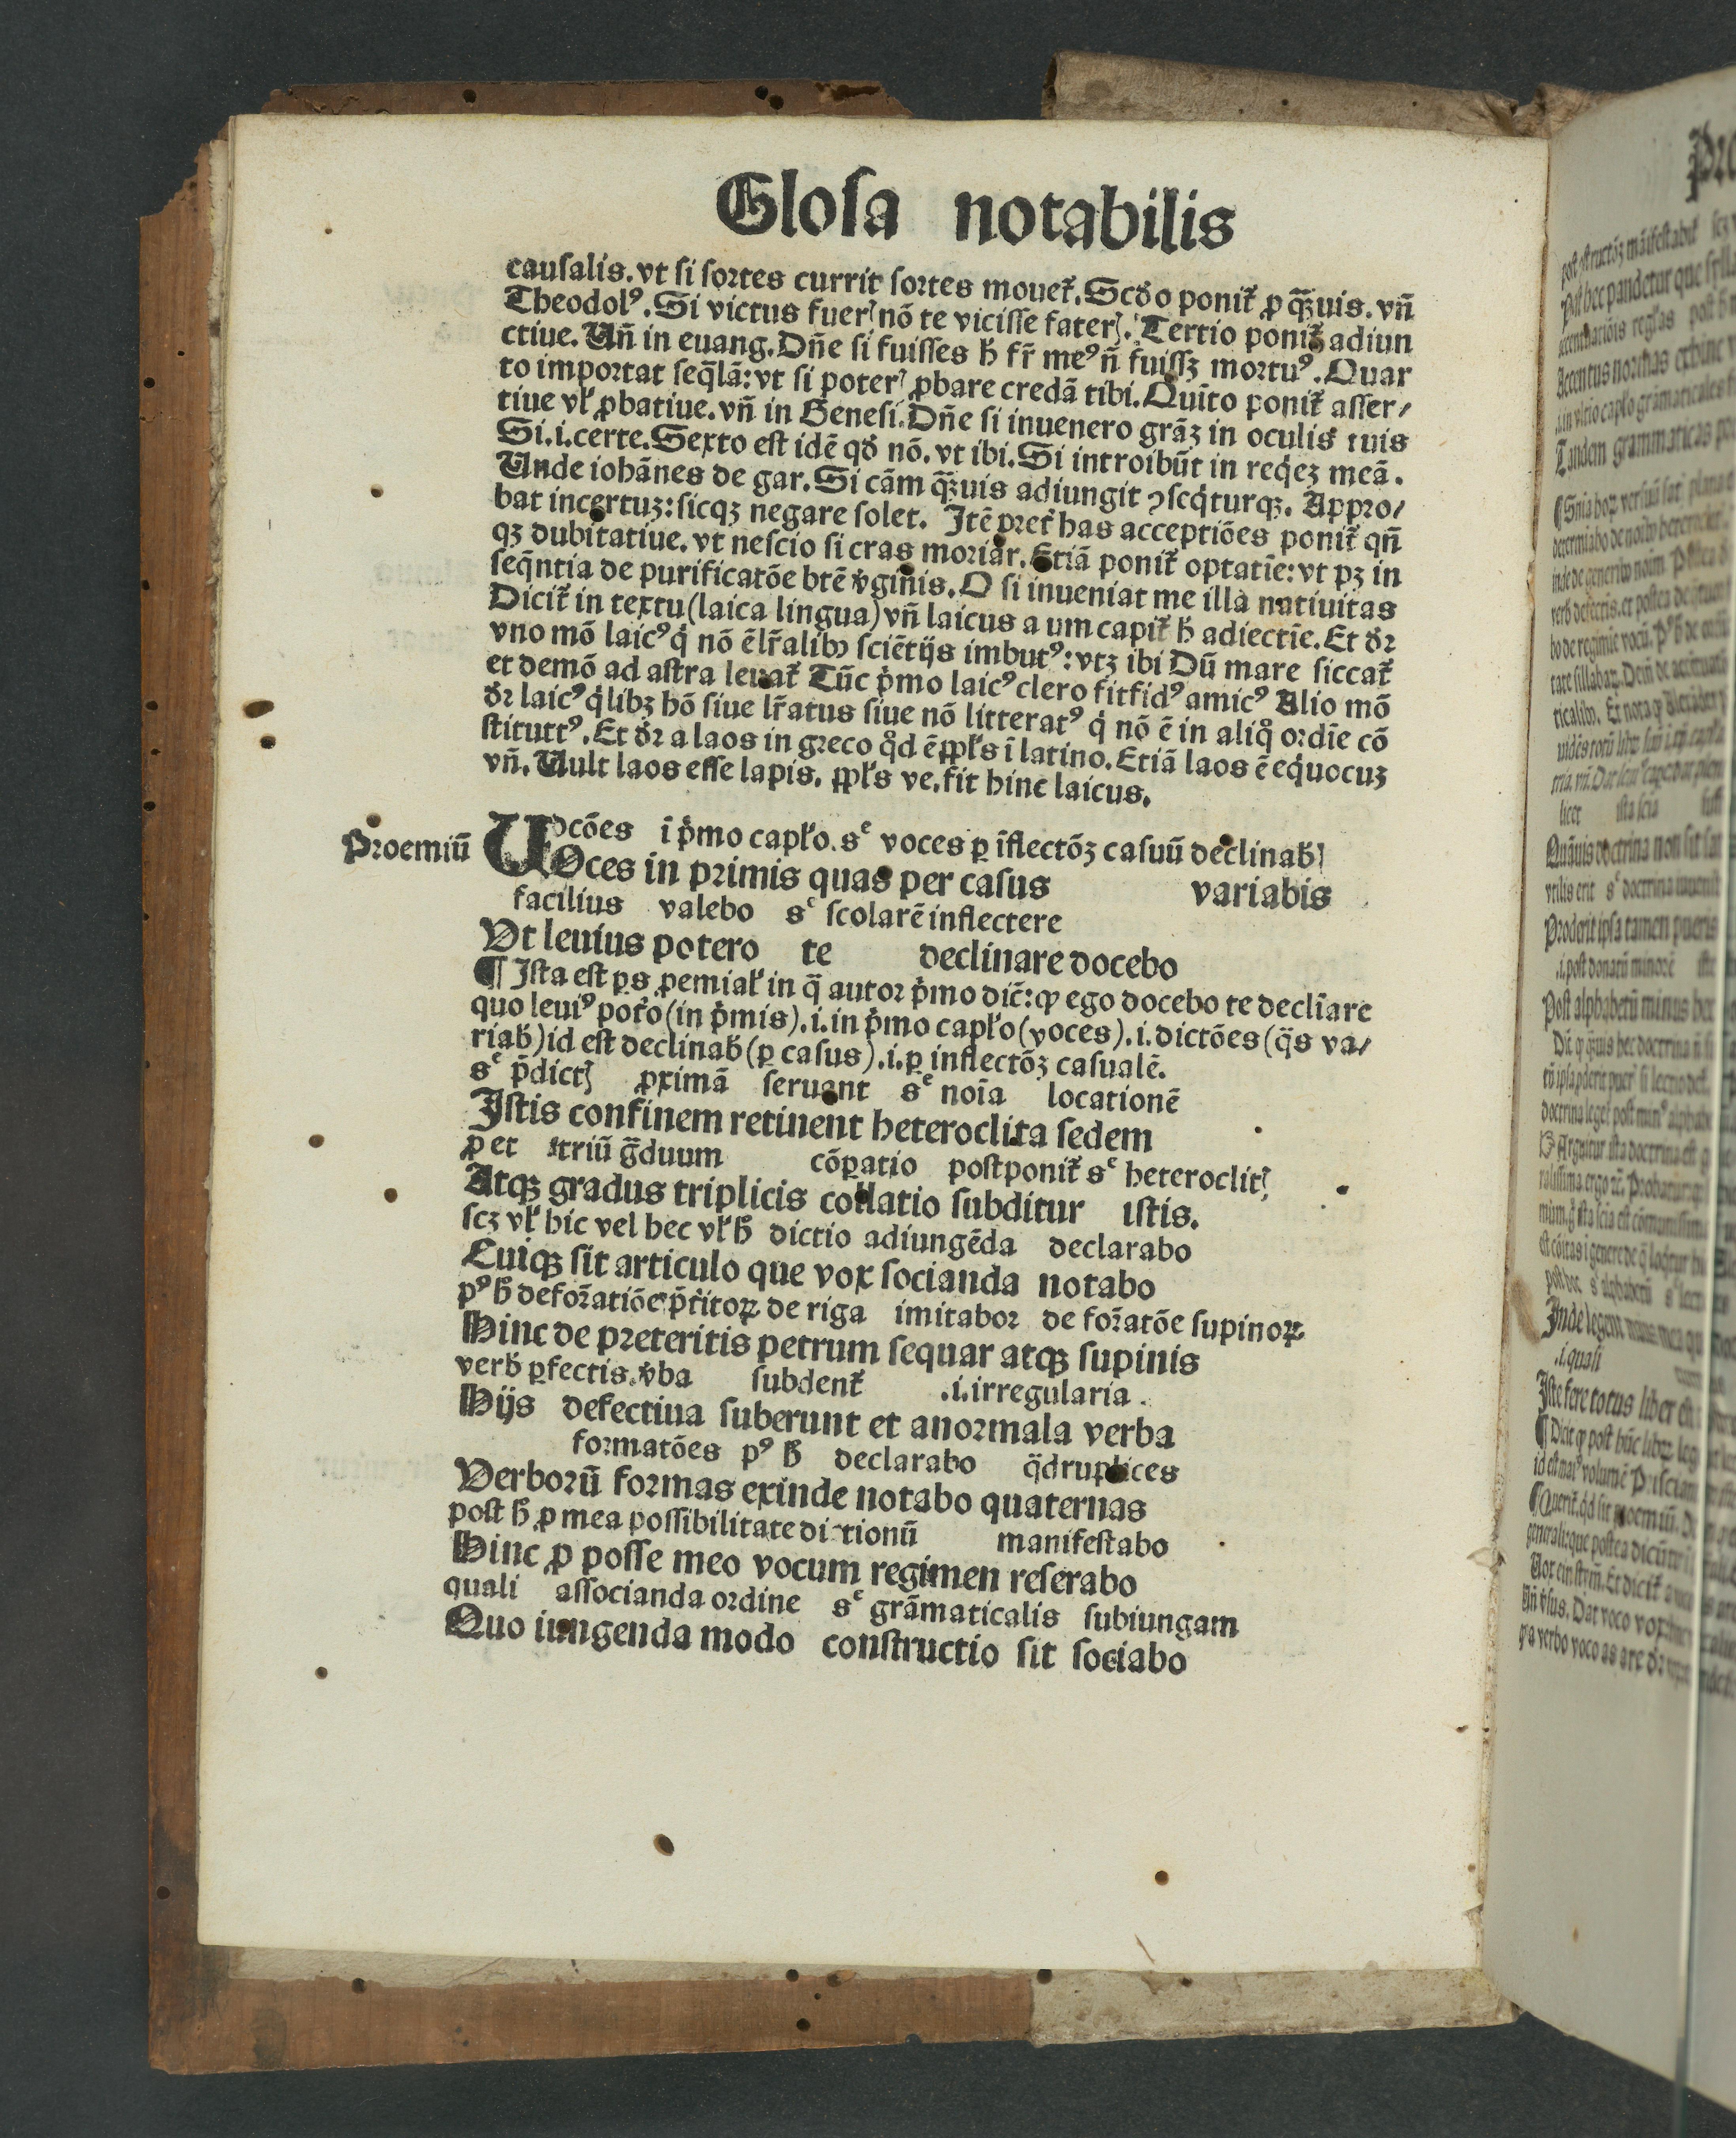 Glosa notabilis
causalis. vt si sortes currit sortes mouet᷑. Scd̊o ponit᷑ ꝓ qꝫuis. vn̄
Theodolꝰ. Si victus fuerꝭ nō te vicisse faterꝭ. Tertio ponit᷑ adiun
ctiue. Un̄ in euang. Dn̄e si fuisses h̄ fr̄ meꝰ n̄ fuissꝫ mortuꝰ. Quar
to importat seq̄lā: vt si poterꝭ ꝓbare credā tibi. Quīto ponit᷑ asser⸗
tiue vl̓ ꝓbatiue. vn̄ in Genesi. Dn̄e si inuenero grāꝫ in oculis tuis
Si .i. certe. Sexto est idē qd̊ nō. vt ibi. Si introibūt in reqͥeꝫ meā.
Unde iohānes de gar. Si cām qꝫuis adiungit ꝯseqͥturqꝫ. Appro⸗
bat incertuꝫ: sicqꝫ negare solet. Itē pret᷑ has acceptiōes ponit᷑ qn̄
qꝫ dubitatiue. vt nescio si cras moriar. Etiā ponit᷑ optatīe: vt pꝫ in
seq̄ntia de purificatōe btē vͥginis. O si inueniat me illa natiuitas
Dicit᷑ in textu (laica lingua) vn̄ laicus a um capit᷑ h̄ adiectīe. Et dr̄
vno mō laicꝰ qͥ nō ē lr̄alibꝰ sciētijs imbutꝰ: vtꝫ ibi Dū mare siccat᷑
et demō ad astra leuat᷑ Tūc pͥmo laicꝰ clero fit fidꝰ amicꝰ Alio mō
dr̄ laicꝰ qͥlibꝫ hō siue lr̄atus siue nō litteratꝰ qͥ nō ē in aliqͦ ordīe cō
stitutꝰ. Et dr̄ a laos in greco qͦd ē ꝓpl̓s ī latino. Etiā laos ē eqͥuocuꝫ
vn̄. Uult laos esse lapis. ꝓpl̓s ve. fit hinc laicus.
Proemiū
Vocōes ī pͥmo capl̓o. sᶜ voces ꝑ īflectōꝫ casuū declinabꝭ
Uoces in primis quas per casus variabis
facilius valebo sᶜ scolarē inflectere
Vt leuius potero te declinare docebo
¶ Ista est ꝑs ꝓemial̓ in q̄ autor pͥmo dic̄: ꝙ ego docebo te declīare
quo leuiꝰ pot᷑o (in pͥmis) .i. in pͥmo capl̓o (voces) .i. dictōes (q̄s va⸗
riab̄) id est declinab̄ (ꝑ casus) .i. ꝑ inflectōꝫ casualē.
sᶜ p̄dictꝭ ꝓximā seruant sᶜ noīa locationē
Istis confinem retinent heteroclita sedem
ꝓ et triū ḡduum cōꝑatio postponit᷑ sᶜ heteroclitꝭ
Atqꝫ gradus triplicis collatio subditur istis.
scꝫ vl̓ hic vel hec vl̓ h̄ dictio adiungēda declarabo
Cuiqꝫ sit articulo que vox socianda notabo
pꝰ h̄ de for̄atiōe p̄t᷑itoꝝ de riga imitabor de for̄atōe supinoꝝ
Hinc de preteritis petrum sequar atqꝫ supinis
verb̄ ꝑfectis. vͥba subdent᷑ .i. irregularia.
Hijs defectiua suberunt et anormala verba
formatōes pꝰ h̄ declarabo q̄druplices
Verborū formas exinde notabo quaternas
post h̄ ꝓ mea possibilitate dictionū manifestabo
Hinc ꝓ posse meo vocum regimen reserabo
quali associanda ordine sᶜ grāmaticalis subiungam
Quo iungenda modo constructio sit sociabo